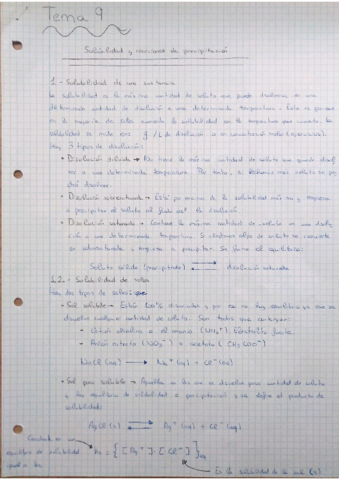 Tema 9
Solubilidad y reacciones de precipitación
1.- Solubilidad de una sustancia
La solubilidad es la máxima cantidad de soluto que puede disolverse en una
determinada cantidad de disolución a una determinada temperatura. Esto es porque
en la mayoría de sales aumenta la solubilidad con la temperatura que aumenta. La
solubilidad se mide en g/L de disolución o en concentración molar
Hay 3 tipos de disolución:
• Disolución diluida → No tiene la máxima cantidad de soluto que puede
a una determinada temperatura. Por tanto, si echamos más soluto se
disolver.
• Disolución sobresaturada → Está por encima de la solubilidad máxima y empieza
a precipitar el soluto al de la disolución
• Disolución saturada → Contiene la máxima cantidad de soluto en una
a una determinada temperatura. Si echamos algo de soluto se convierte
en sobresaturada y empieza a precipitar. Se forma el equilibrio:
Soluto sólido (precipitado) ⇌ disolución saturada
1.2.- Solubilidad de sales
Hay dos tipos de sales:
• Sal soluble → Están 100% disociadas y por eso no hay equilibrio ya que se
disuelve cualquier cantidad de soluto. Son todas que contengan:
- Catión alcalino o el amonio (NH₄⁺).
- Anión nitrato (NO₃⁻) o acetato (CH₃COO⁻)
NaCl (s) → Na⁺ (aq) + Cl⁻ (aq)
• Sal poco soluble → Aquellas en las que se disuelve poca cantidad de soluto
y hay equilibrio de solubilidad o precipitación y se define el producto de
solubilidad:
AgCl (s) ⇌ Ag⁺ (aq) + Cl⁻ (aq)
Constante en un
equilibrio de solubilidad
Ks = {[Ag⁺]·[Cl⁻]}eq
Es la solubilidad de la sal (s)